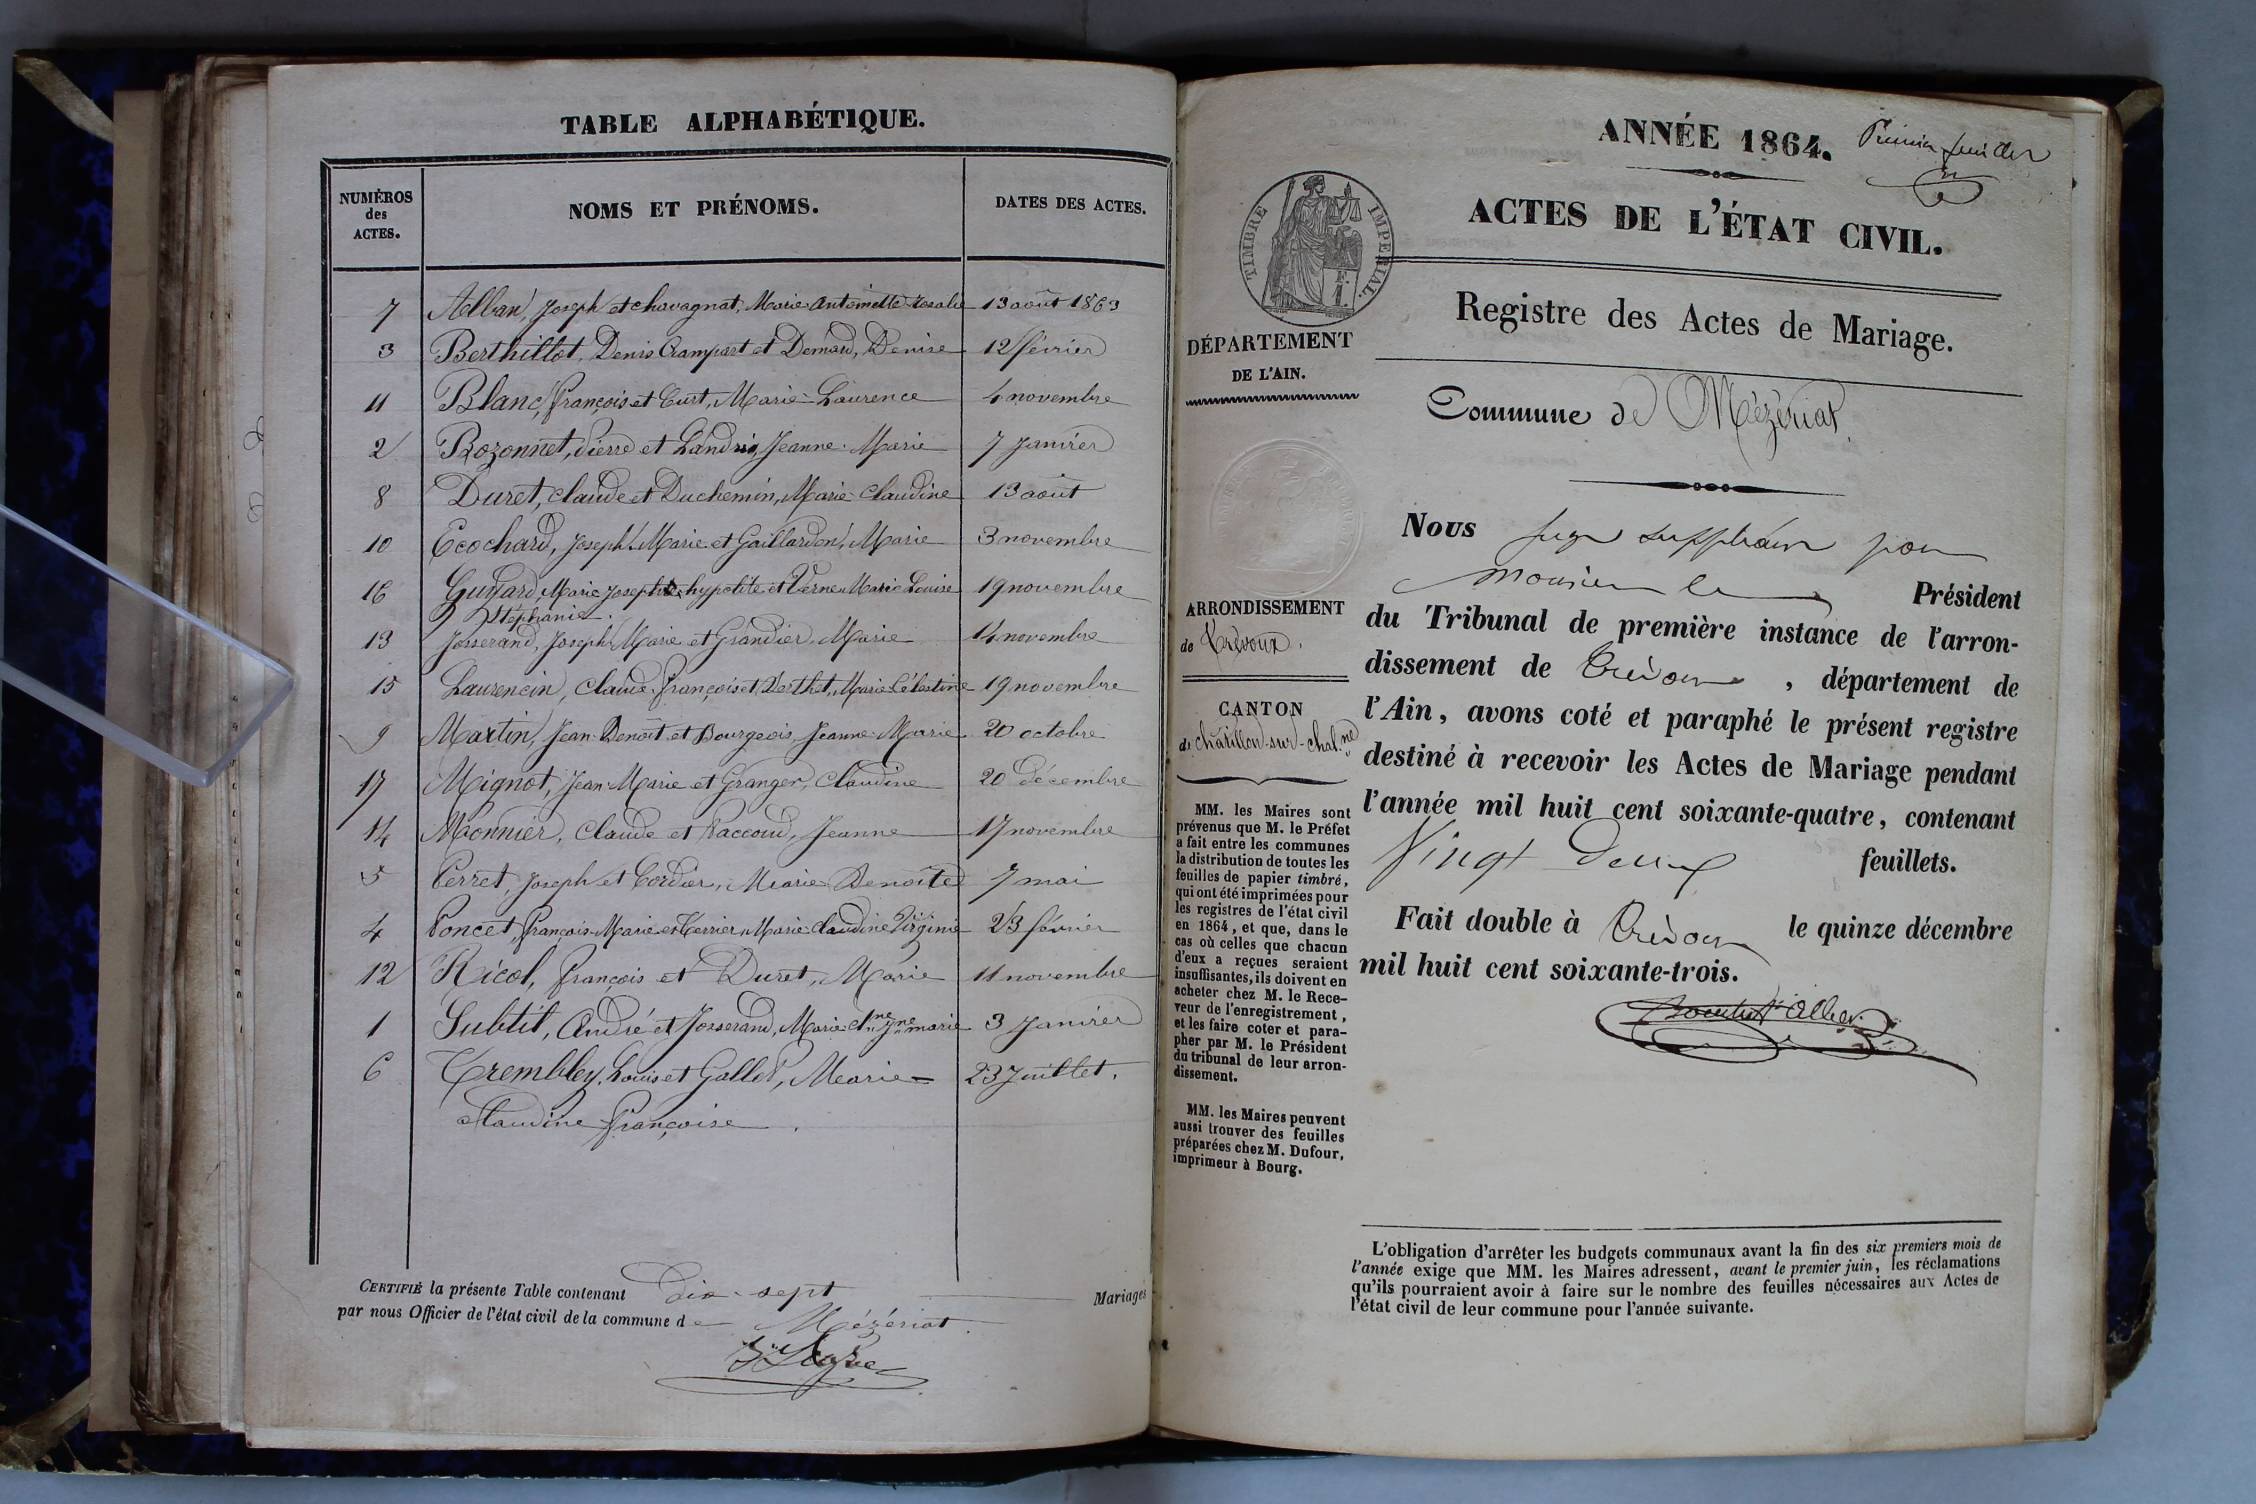 TABLE ALPHABÉTIQUE.
NUMÉROS des ACTES.
NOMS ET PRÉNOMS.
DATES DES ACTES.
7 Alban, Joseph et Chavagnat, Marie Antoinette Rosalie 13 août 1863
3 Berthillot, Denis Rampart et Demard, Denise 12 février
11 Blanc, François et Curt, Marie-Laurence 4 novembre
2 Bozonnet, Pierre et Landris, Jeanne-Marie 7 Janvier
8 Duret, Claude et Duchemin, Marie-Claudine 13 août
10 Ecochard, Joseph-Marie et Gaillardon, Marie 3 novembre
16 Guyard, Marie Joseph hypolite et Verne Marie Louise 19 novembre
Stéphanie.
13 Josserand, Joseph Marie et Grandier, Marie 14 novembre
15 Laurencin, Claude-François et Berthet, Marie Célestine 19 novembre
9 Martin, Jean-Benoît et Bourgeois, Jeanne-Marie 20 octobre
17 Mignot, Jean-Marie et Granger, Claudine 20 Décembre
14 Monnier, Claude et Paccoud, Jeanne 17 novembre
5 Perret, Joseph et Cordier, Marie Benoîte 7 mai
4 Poncet, François-Marie et Terrier, Marie-Claudine Virginie 23 février
12 Ricol, François et Duret, Marie 11 novembre
1 Subtil, André et Josserand, Marie et Jne marie 3 Janvier
6 Trembley, Louis et Gallet, Marie- 23 Juillet.
Claudine Françoise.
CERTIFIÉ la présente Table contenant Dix-sept Mariages
par nous Officier de l'état civil de la commune de Mézériat.
ANNÉE 1864.
Premier feuillet
TIMBRE IMPERIAL.
ACTES DE L'ÉTAT CIVIL.
Registre des Actes de Mariage.
DÉPARTEMENT
DE L'AIN.
Commune de Mézériat.
ARRONDISSEMENT
de Trévoux.
CANTON
de Châtillon-sur-Chal.ne
MM. les Maires sont
prévenus que M. le Préfet
a fait entre les communes
la distribution de toutes les
feuilles de papier timbré,
qui ont été imprimées pour
les registres de l'état civil
en 1864, et que, dans le
cas où celles que chacun
d'eux a reçues seraient
insuffisantes, ils doivent en
acheter chez M. le Rece-
veur de l'enregistrement,
et les faire coter et para-
pher par M. le Président
du tribunal de leur arron-
dissement.
MM. les Maires peuvent
aussi trouver des feuilles
préparées chez M. Dufour,
imprimeur à Bourg.
Nous Juge suppléant pour
monsieur le Président
du Tribunal de première instance de l'arron-
dissement de Trévoux, département de
l'Ain, avons coté et paraphé le présent registre
destiné à recevoir les Actes de Mariage pendant
l'année mil huit cent soixante-quatre, contenant
Vingt Deux feuillets.
Fait double à Trévoux le quinze décembre
mil huit cent soixante-trois.
L'obligation d'arrêter les budgets communaux avant la fin des six premiers mois de
l'année exige que MM. les Maires adressent, avant le premier juin, les réclamations
qu'ils pourraient avoir à faire sur le nombre des feuilles nécessaires aux Actes de
l'état civil de leur commune pour l'année suivante.